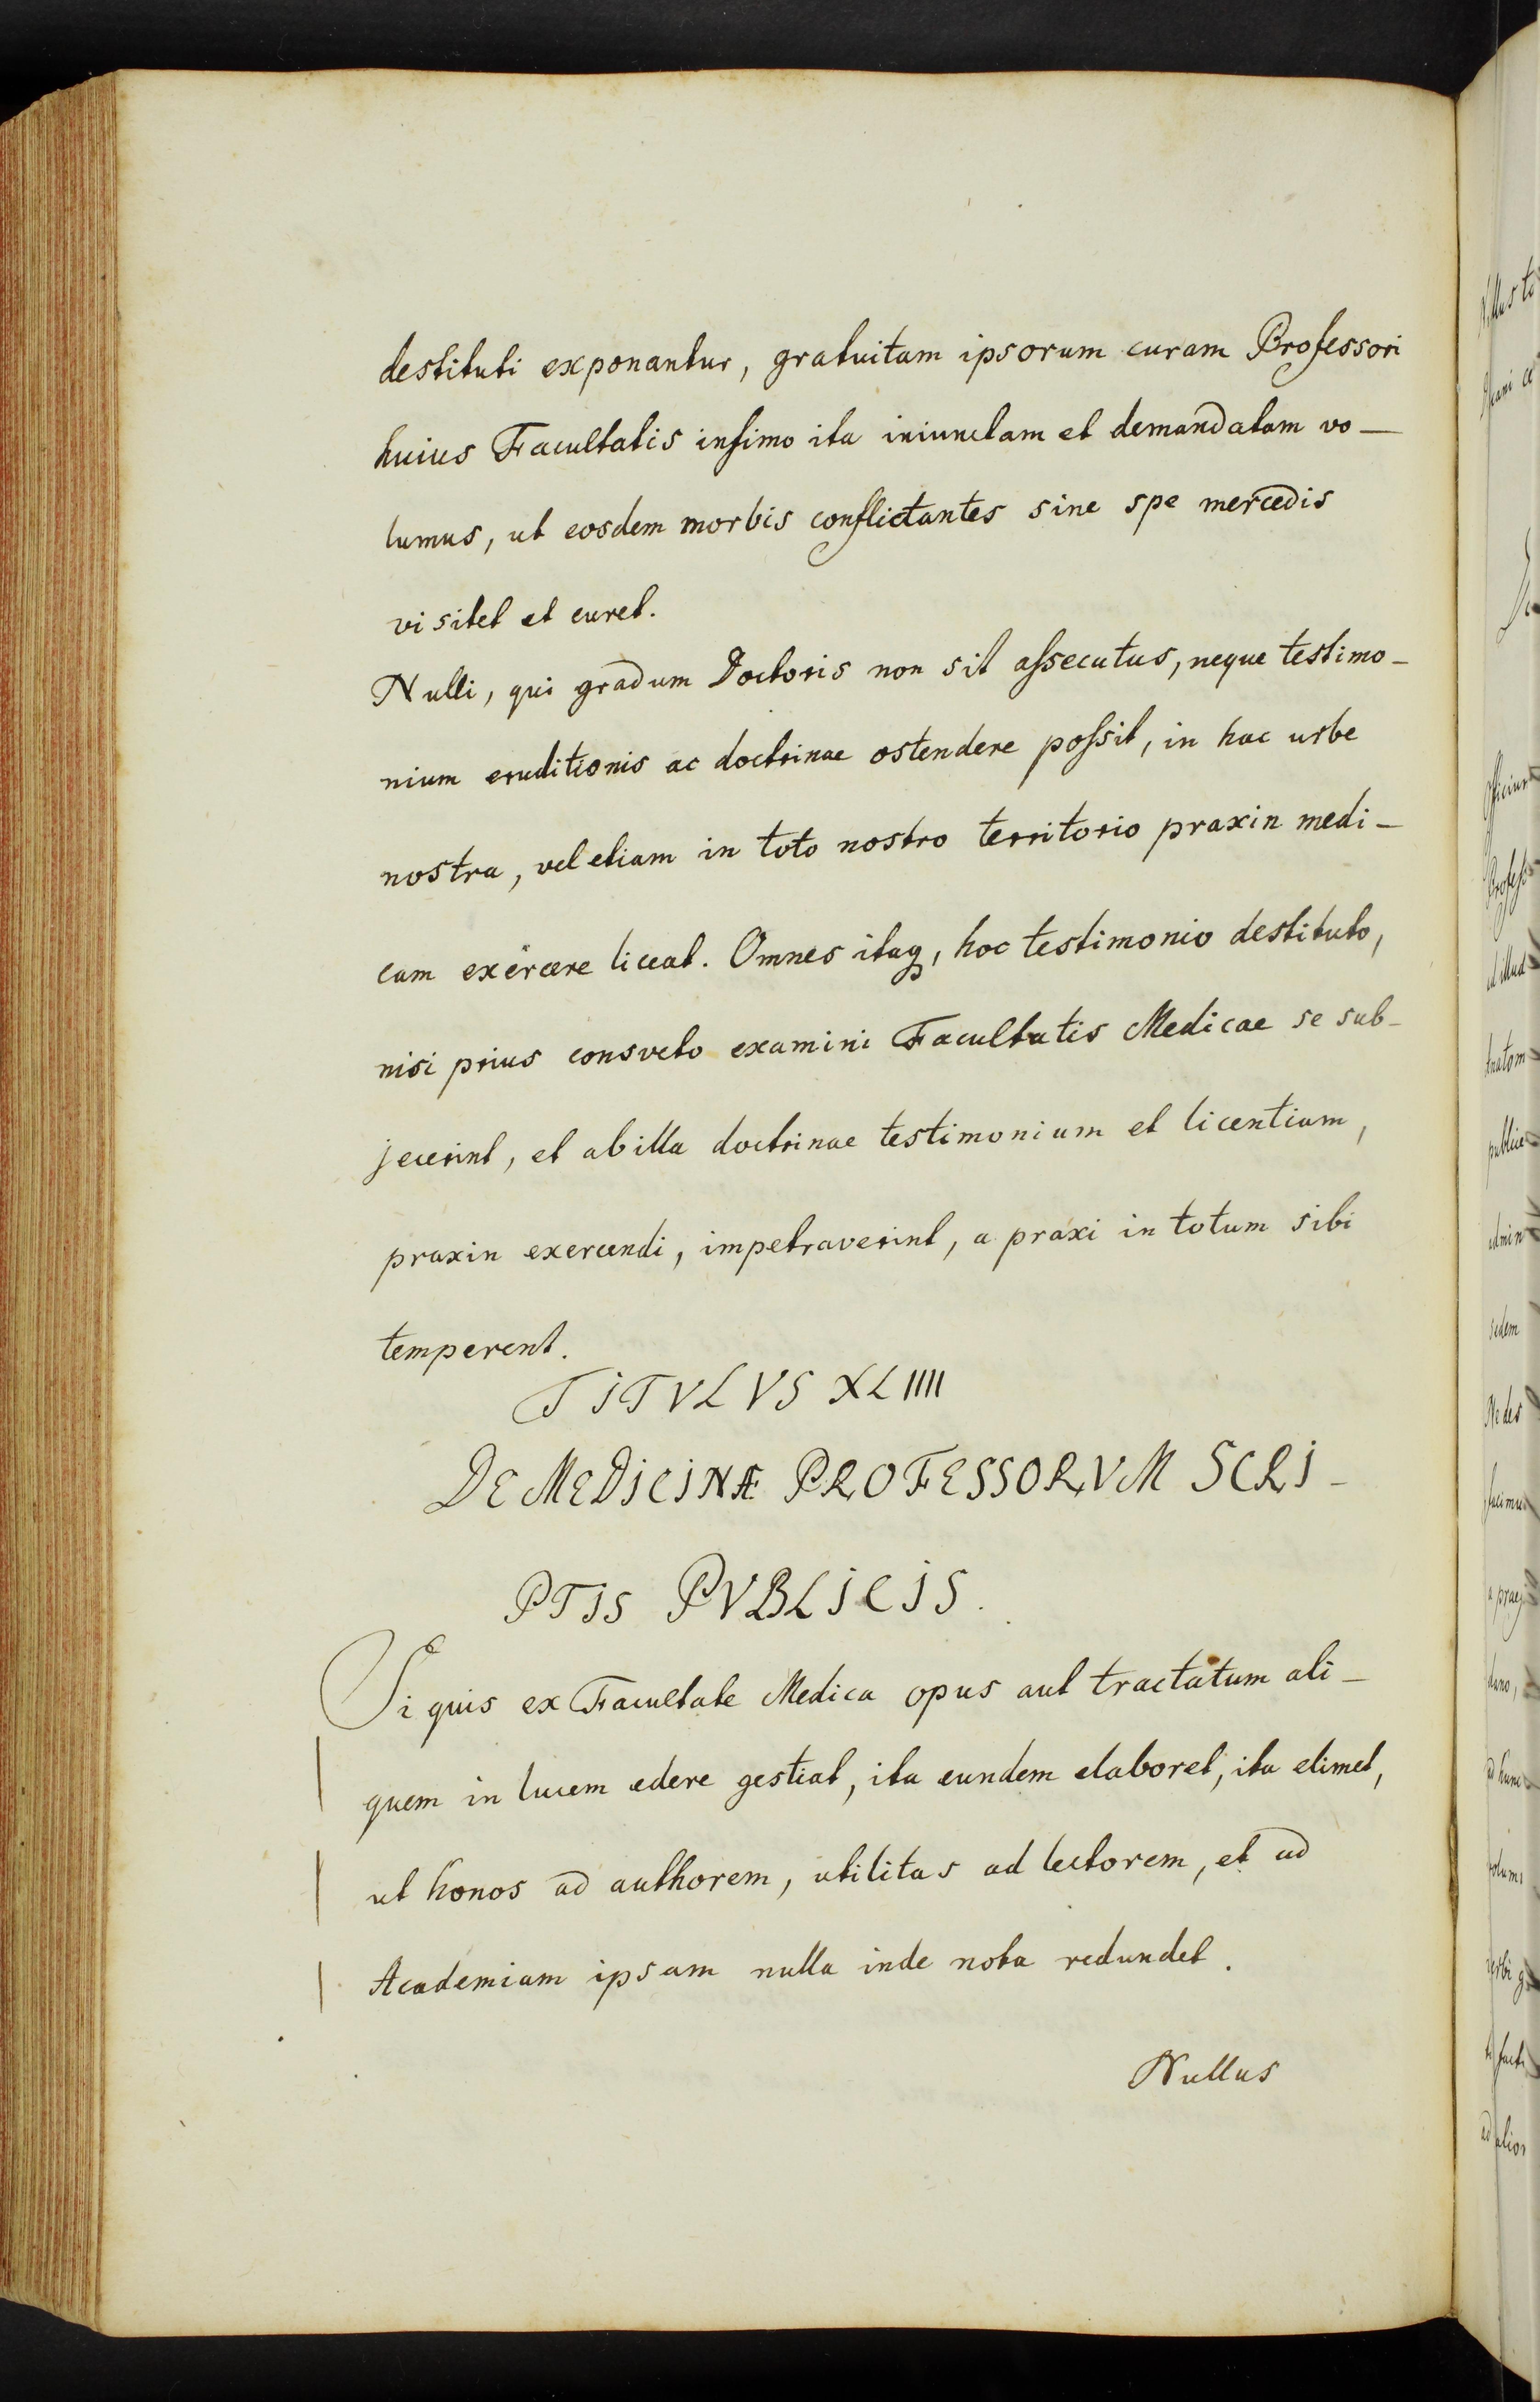 destituti exponantur, gratuitam ipsorum curam Professori
huius Facultatis infimo ita iniunctam et demandatam vo-
lumus, ut eosdem morbis conflictantes sine spe mercedis
visitet et curet.
Nulli, qui gradum Doctoris non sit assecutus, neque testimo-
nium eruditionis ac doctrinae ostendere possit, in hac urbe
nostra, vel etiam in toto nostro territorio praxin medi-
cam exercere liceat. Omnes itaq, hoc testimonio destituto,
nisi prius consveto examini Facultatis Medicae se sub-
jecerint, et ab illa doctrinae testimonium et licentiam,
praxin exercendi, impetraverint, a praxi in totum sibi
temperent.
TITVLVS XLIIII
DE MEDICINÆ PROFESSORVM SCRI-
PTIS PVBLICIS.
Si quis ex Facultate Medica opus aut tractatum ali-
quem in lucem edere gestiat, ita eundem elaboret, ita elimet,
ut honos ad authorem, utilitas ad lectorem, et ad
Academiam ipsam nulla inde nota redundet.
Nullus